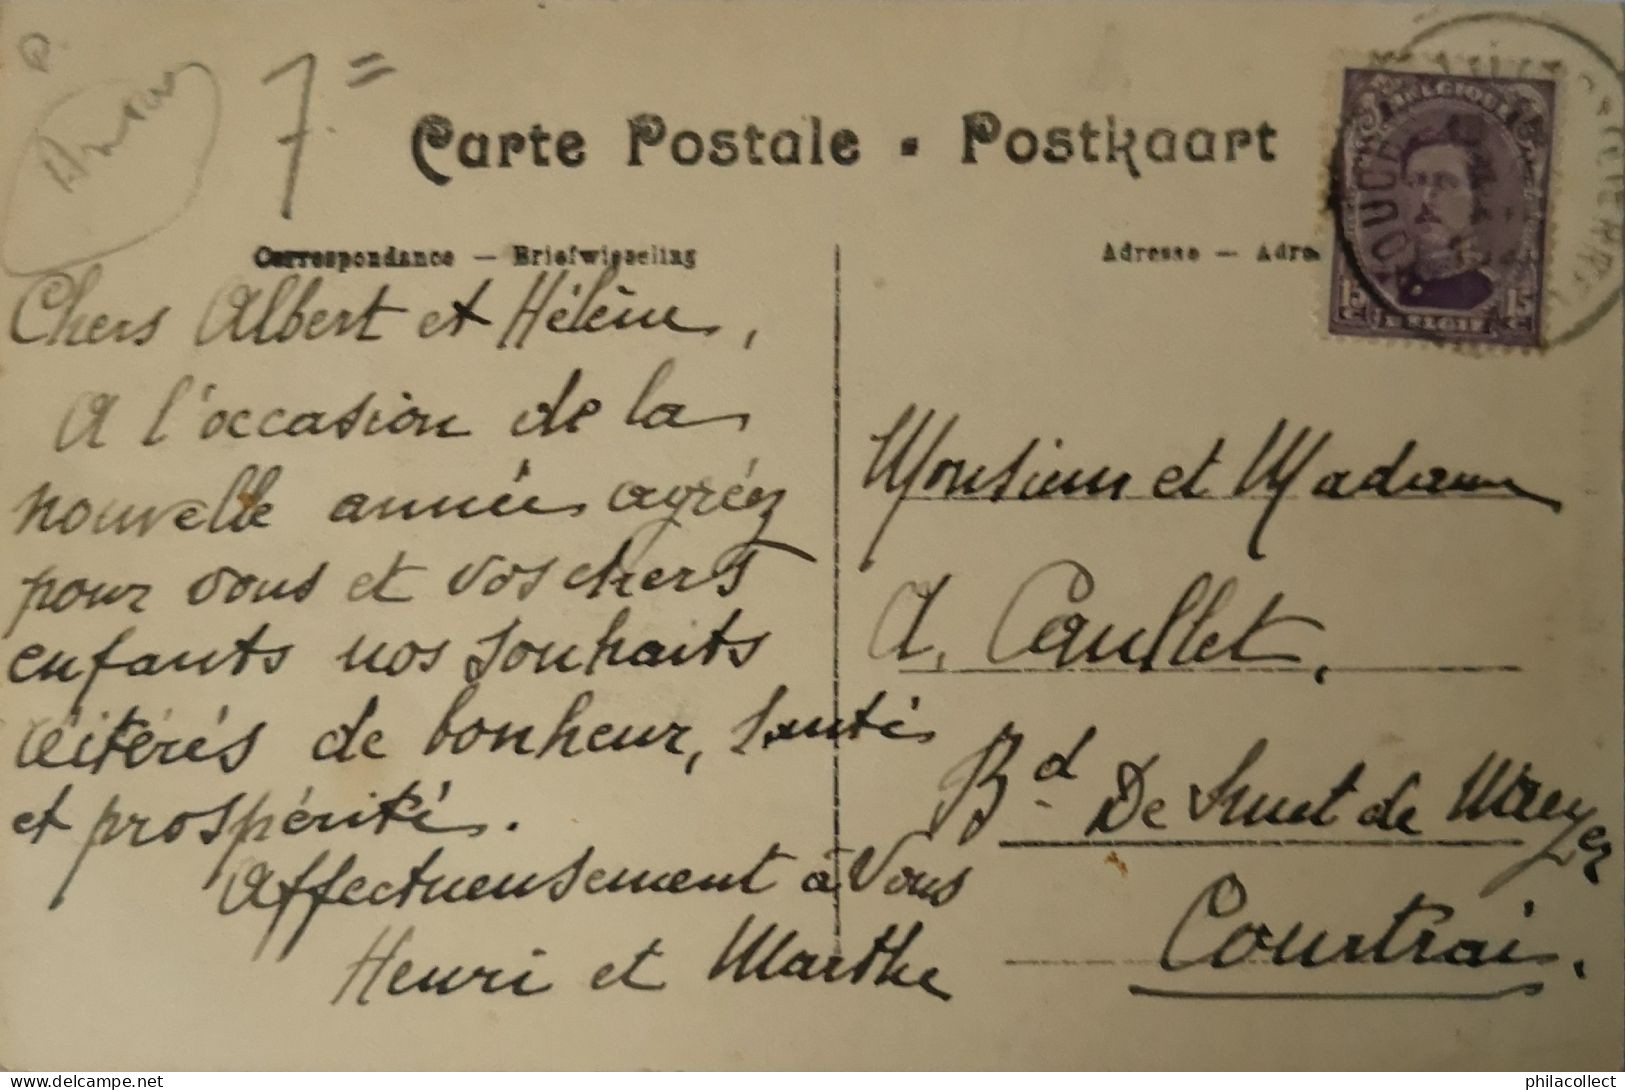 7 =
Carte Postale - Postkaart
Correspondance — Briefwisseling
Adresse — Adre
BELGIQUE
15 c 15 c
BELGIË
Chers Albert et Hélène,
A l'occasion de la
nouvelle année agréez
pour vous et vos chers
enfants nos souhaits
réitérés de bonheur, santé
et prospérité.
Affectueusement à vous
Henri et Marthe
Monsieur et Madame
A. Caullet,
Bd De Smet de Naeyer
Courtrai.
philacollect